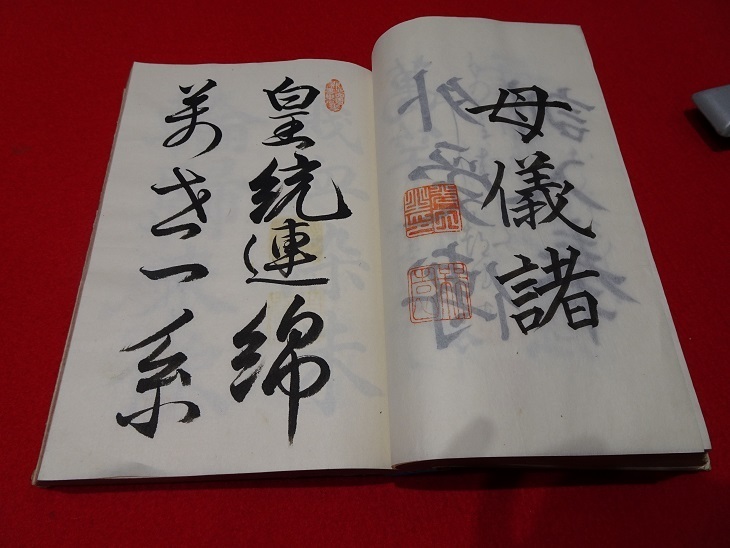 母儀諸
皇統連綿
万世一系